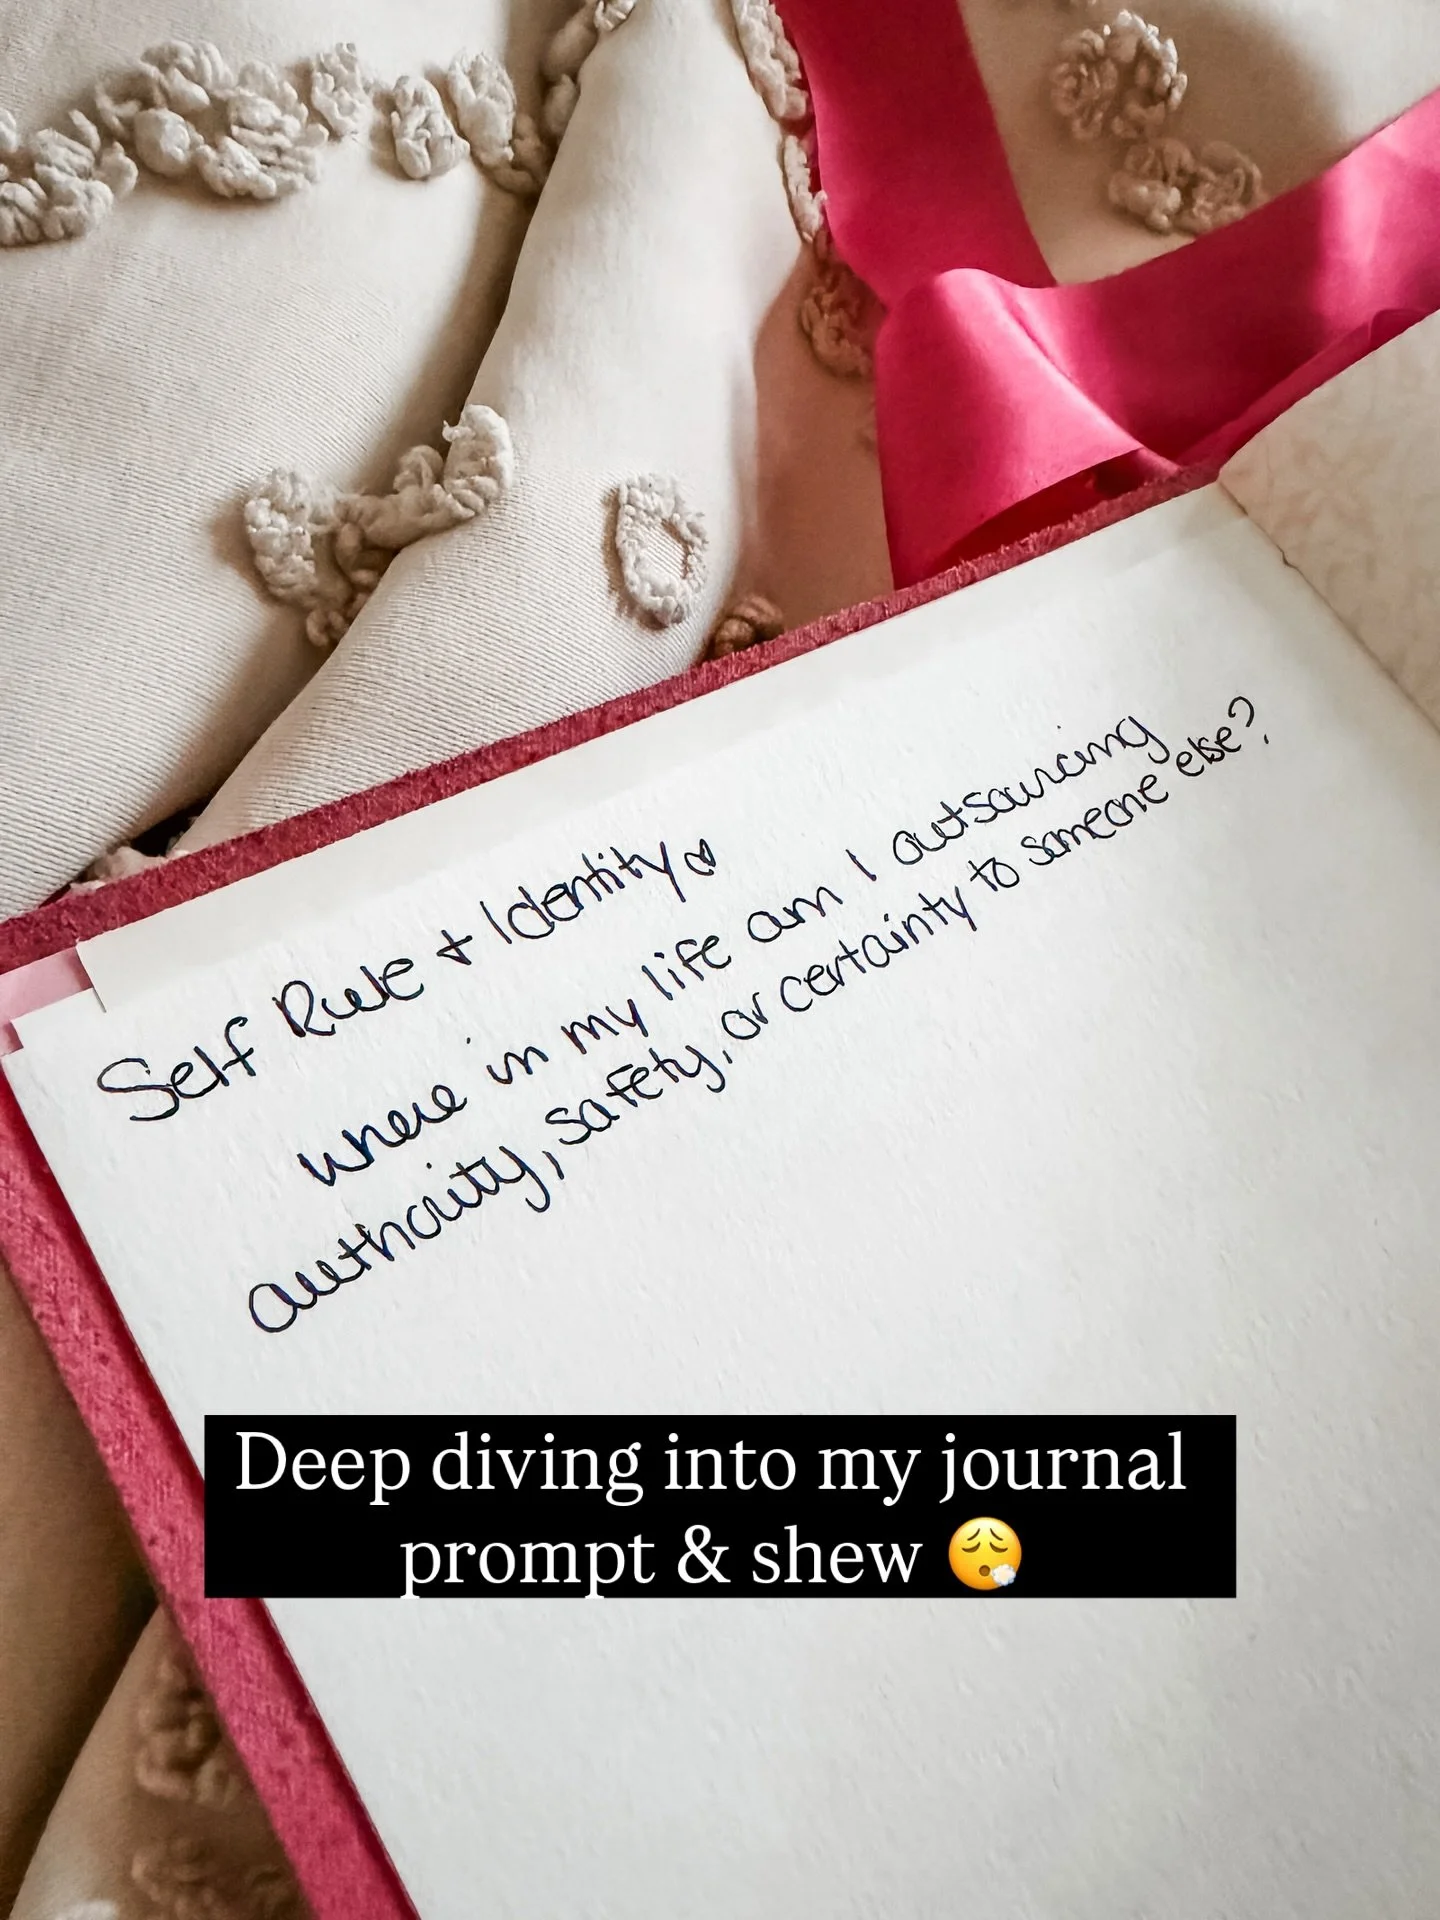 Self Rule + Identity ♡
where in my life am I outsourcing
authority, safety, or certainty to someone else?
Deep diving into my journal
prompt & shew 😮‍💨